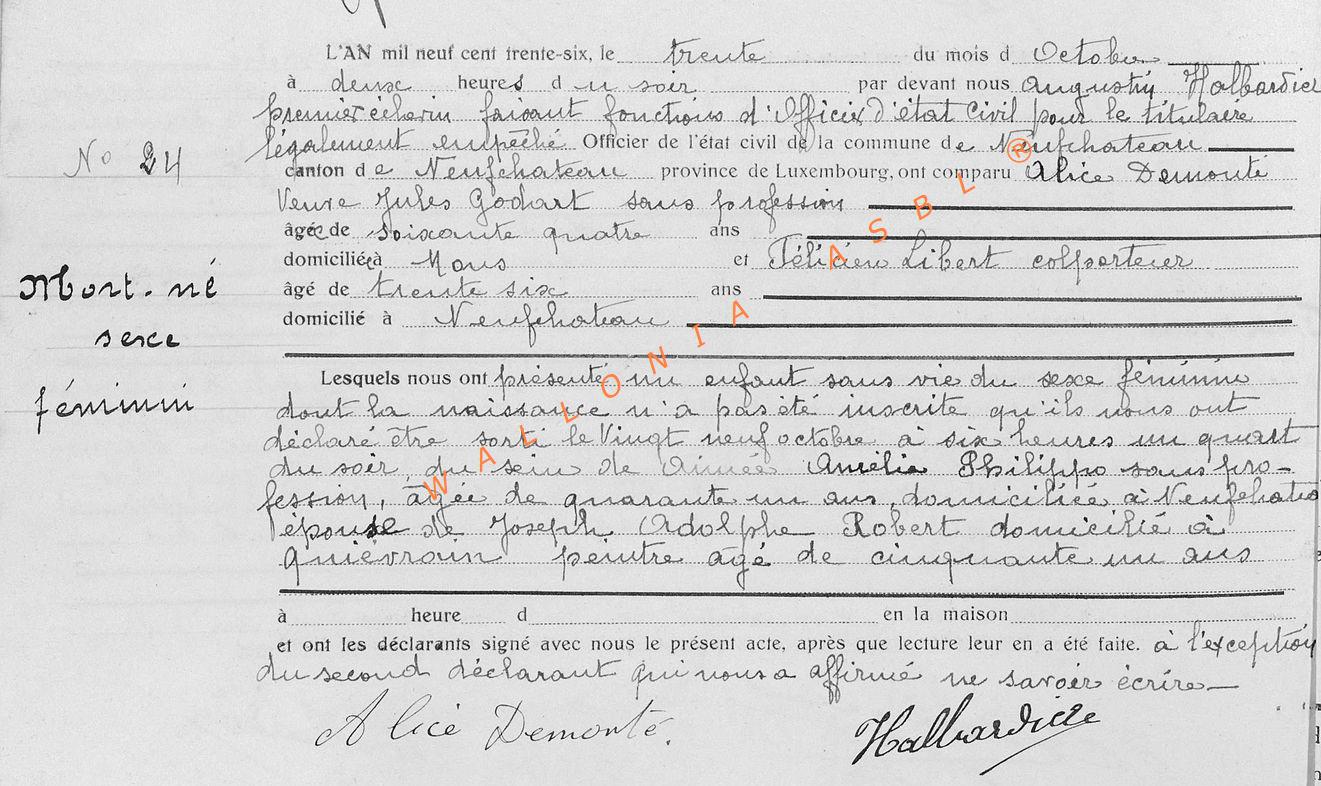 L'AN mil neuf cent trente-six, le trente du mois d Octobre
à deux heures d u soir par devant nous Augustin Halbardier
premier échevin faisant fonctions d'Officier d'état Civil pour le titulaire
légalement empêché Officier de l'état civil de la commune de Neufchateau
No 24
canton de Neufchateau province de Luxembourg, ont comparu Alice Demonté
Veuve Jules Godart sans profession
âgée de soixante quatre ans
domiciliée à Mons et Félicien Libert colporteur
Mort-né
âgé de trente six ans
domicilié à Neufchateau
sexe
féminin
Lesquels nous ont présenté un enfant sans vie du sexe féminin
dont la naissance n'a pas été inscrite qu'ils nous ont
déclaré être sorti le Vingt neuf octobre à six heures un quart
du soir, du sein de Aimée Amélia Philippo sans pro-
fession, âgée de quarante un ans, domiciliée à Neufchateau
épouse de Joseph Adolphe Robert domicilié à
Quiévrain peintre âgé de cinquante un ans
à heure d en la maison
et ont les déclarants signé avec nous le présent acte, après que lecture leur en a été faite. à l'exception
du second déclarant qui nous a affirmé ne savoir écrire
Alice Demonté.
Halbardier
WALLONIA ASBL ®